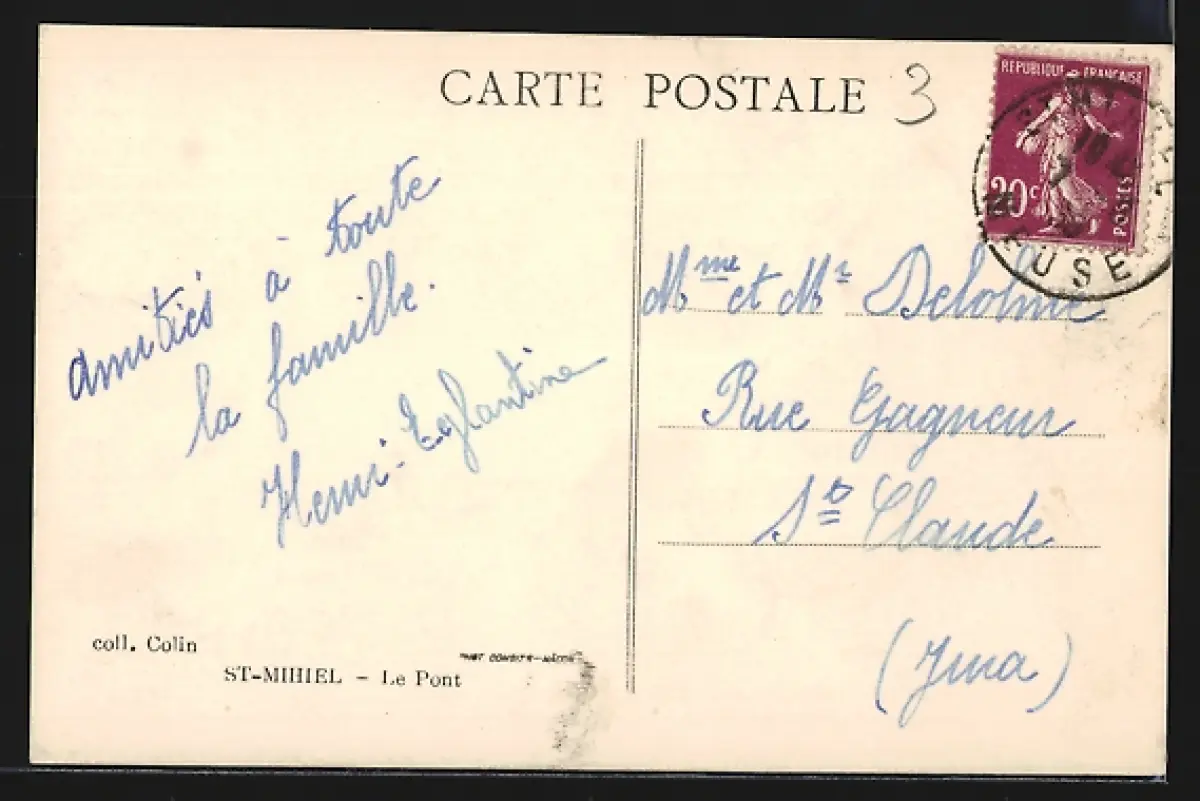 CARTE POSTALE 3
REPUBLIQUE FRANÇAISE
20c
POSTES
MEUSE
amitiés à toute
la famille.
Henri-Eglantine
Mme et Mr Delorme
Rue Gagneur
St Claude
(Jura)
coll. Colin
ST-MIHIEL - Le Pont